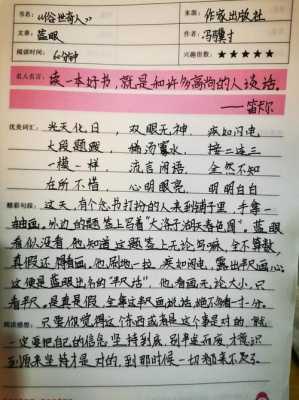 书名：《俗世奇人》 来源：作家出版社
文章：蓝眼 作者：冯骥才
阅读时间：60分钟 兴趣指数：★★★★★
名人名言：读一本好书，就是和许多高尚的人谈话。
——笛卡尔
优美词汇：光天化日，双眼无神，疾如闪电
大段题跋 倘汤寡水，接二连三
一模一样，流言闲语，全然不知
在所不惜，心明眼亮，明明白白
精彩句段：这天，有个念书打扮的人来到铺子里，手拿一
轴画。外边的题签上写着"大涤子湖天春色图"。蓝眼
看似没看，他知道这题签上无论写嘛，全不算数，
真假还得看画。他刷地一拉，疾如闪电，露出半尺画心。
这便是蓝眼出名的"半尺活"，他看画无论大小，只
看半尺。是真是假，全拿这半尺画说话，绝不多看一寸一分。
阅读感想：只要你觉得这个东西或者是这个事是对的，就
一定要把自己的信念坚持到底，别半途而废，才意识
到原来坚持才是对的，到那时候一切都来不及了。